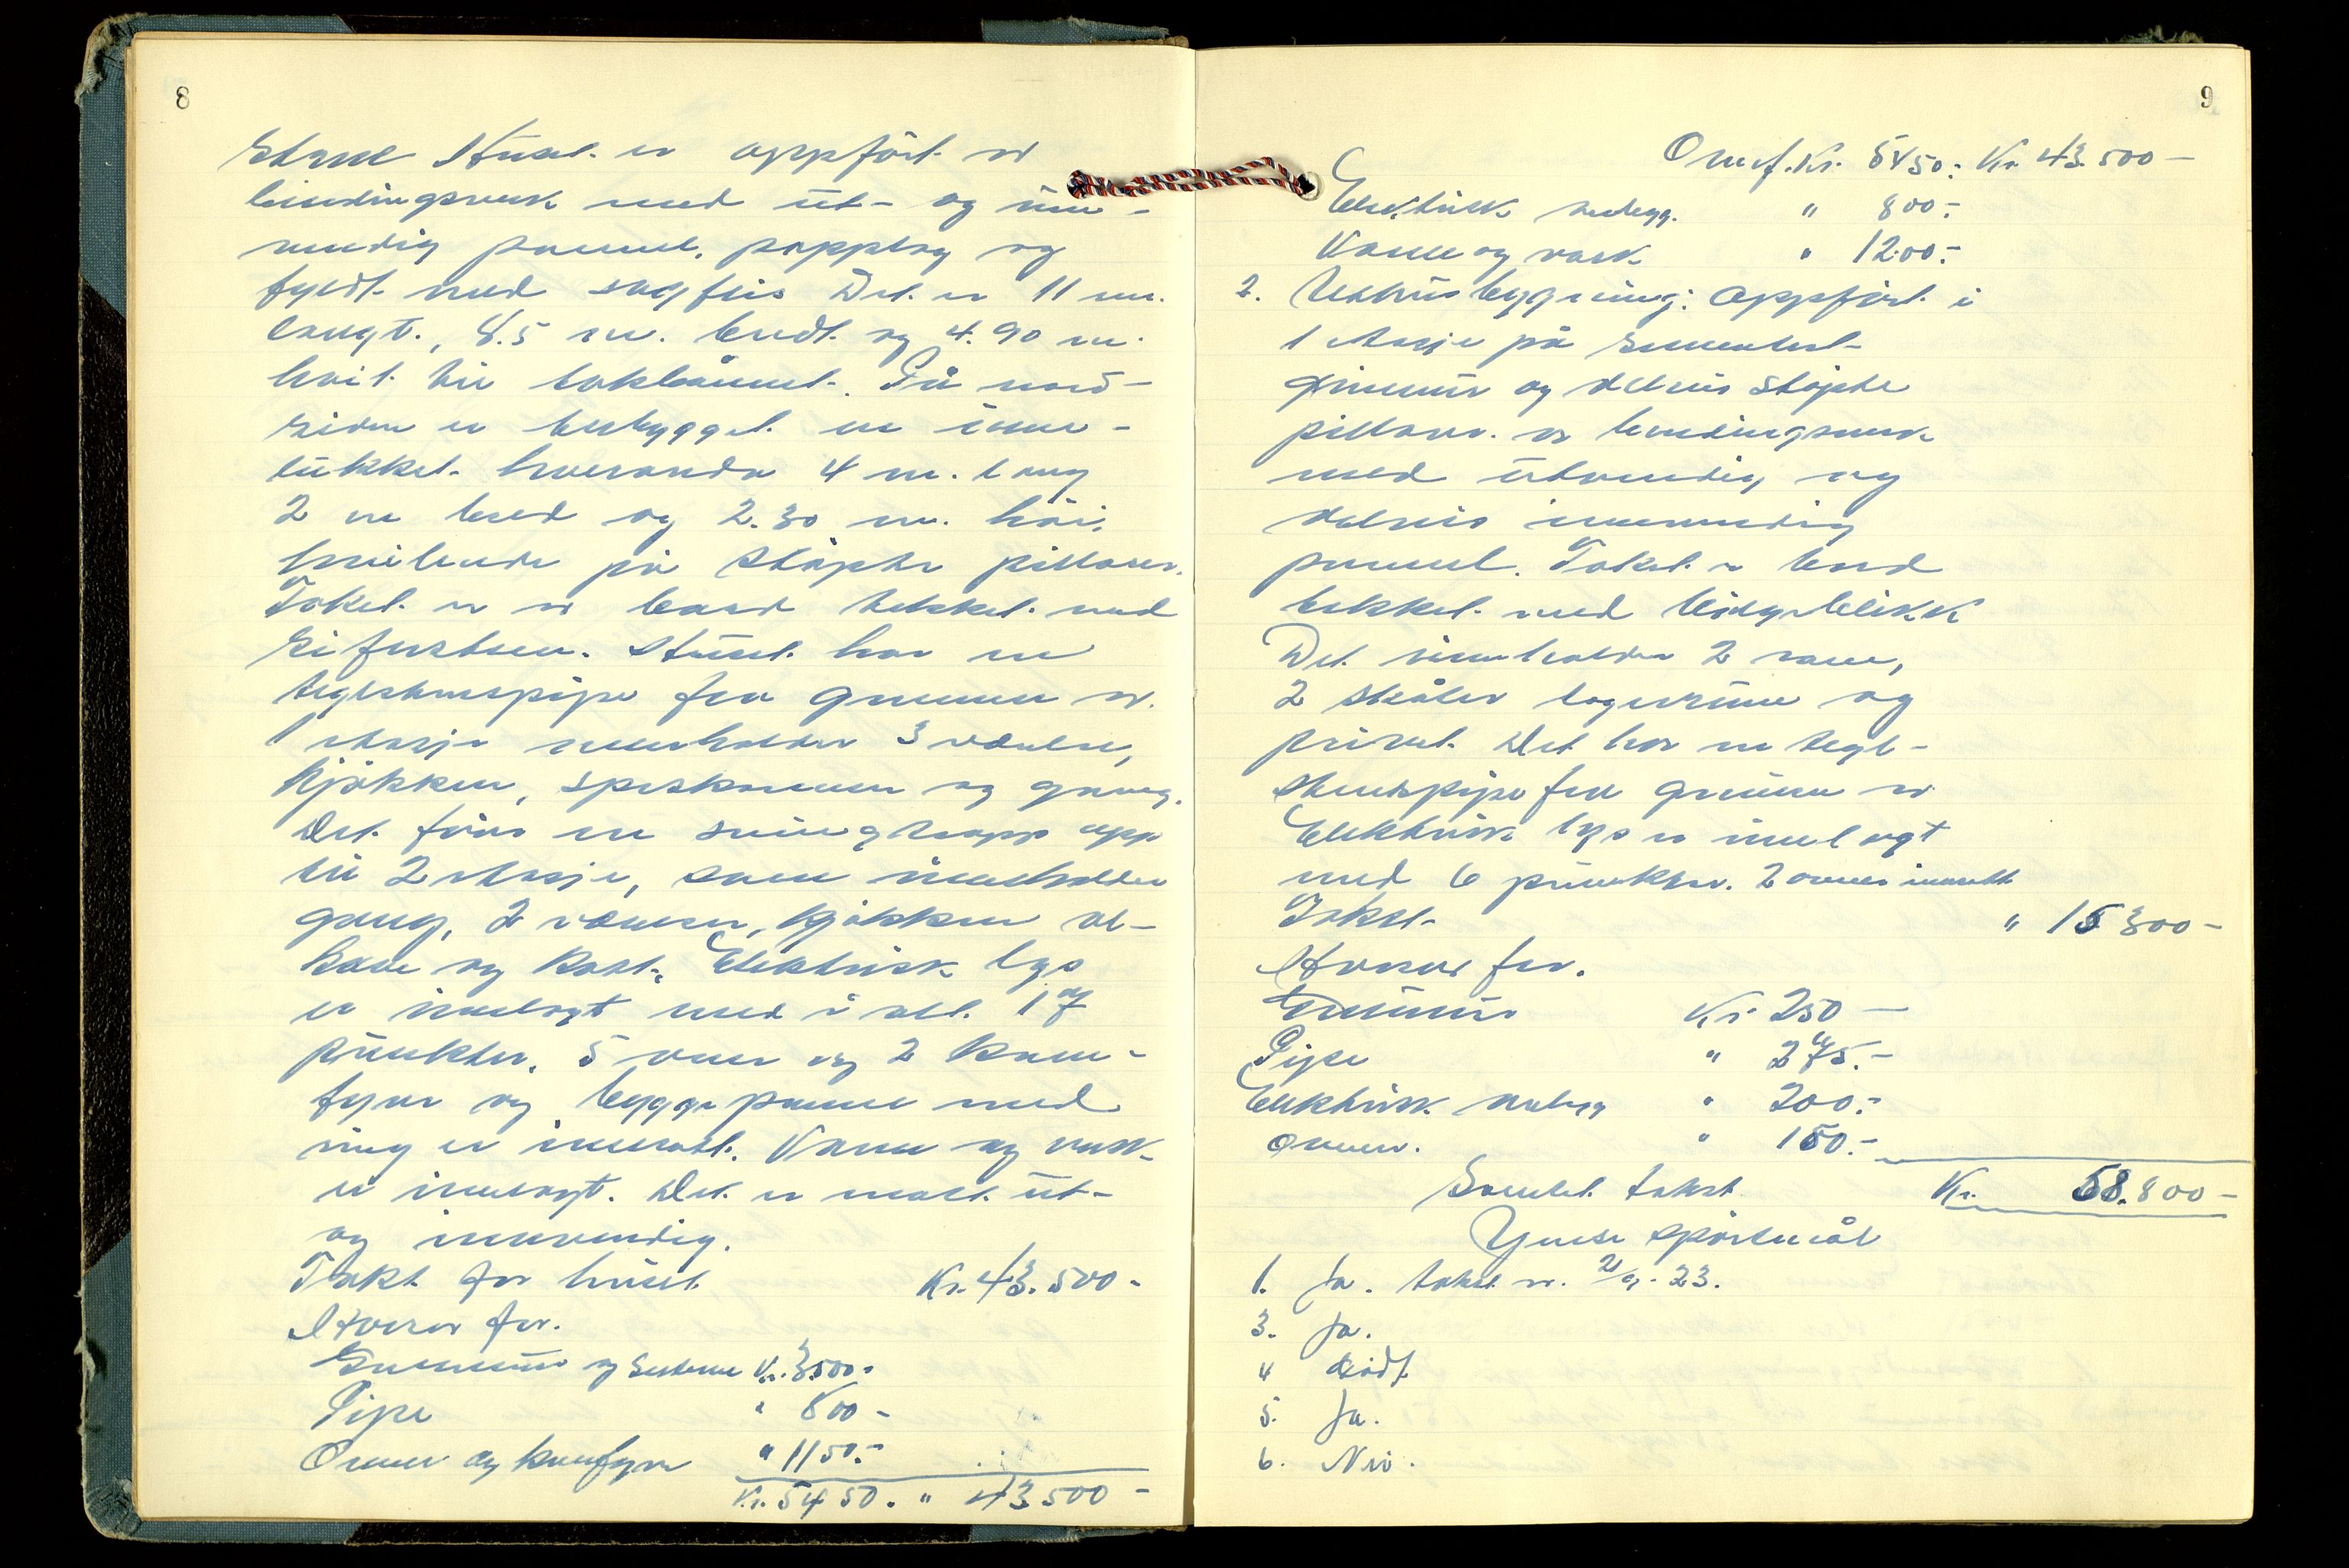 8
Huset er oppført av
bindingsverk med ut- og inn-
vendig panel, papplag og
fyldt med sagflis Det er 11 m.
langt, 8.5 m. bredt og 4.90 m.
høit til takbåndet. På nord-
siden er tilbygget en inne-
lukket hveranda 4 m. lang
2 m bred og 2.30 m. høi,
hvilende på støpte pillarer.
Taket er av bord tekket med
skifersten. Huset har en
teglstenspipe fra grunnen av.
1 etasje inneholder 3 værelser,
kjøkken, spiskammer og gang.
Det fører en svingtrapp opp
til 2 etasje, som inneholder
gang, 2 værelser, kjøkken al-
kove og kott. Elektrisk lys
er innlagt med i alt 17
punkter. 5 ovner og 2 kom-
fyrer og byggepanne med
ring er innsatt. Vann og vask
er innlagt. Det er malt ut-
og innvendig.
Takst for huset Kr. 43.500-
Hvorav for.
Grunnmur og cisterne Kr. 3500-
Pipe " 800-
Ovner og komfyrer " 1150.-
Kr. 5450. " 43500-
9
Omf. Kr. 5450.- Kr. 43500-
Elektrisk anlegg. " 800.-
Vann og vask " 1200.-
2. Uthusbygning: Oppført i
1 etasje på sementert
grunnmur og delvis støpte
pillarer. av bindingsverk
med utvendig og
delvis innvendig
pannel. Taket av bord
tekket med bølgeblikk
Det inneholder 2 rom,
2 stråler lagerrum og
privet. Det har en tegl-
stenspipe fra grunnen av
Elektrisk lys er innlagt
med 6 punkter. 2 ovner innsatt
Takst " 15300-
Hvorav for.
Grunnmur Kr. 250-
Pipe " 275.-
Elektrisk anlegg " 200.-
Ovner. " 150.-
Samlet takst Kr. 58.800-
Ymse spørsmål
1. Ja. takst av 21/9-23.
3. Ja.
4 Godt
5. Ja.
6. Nei.